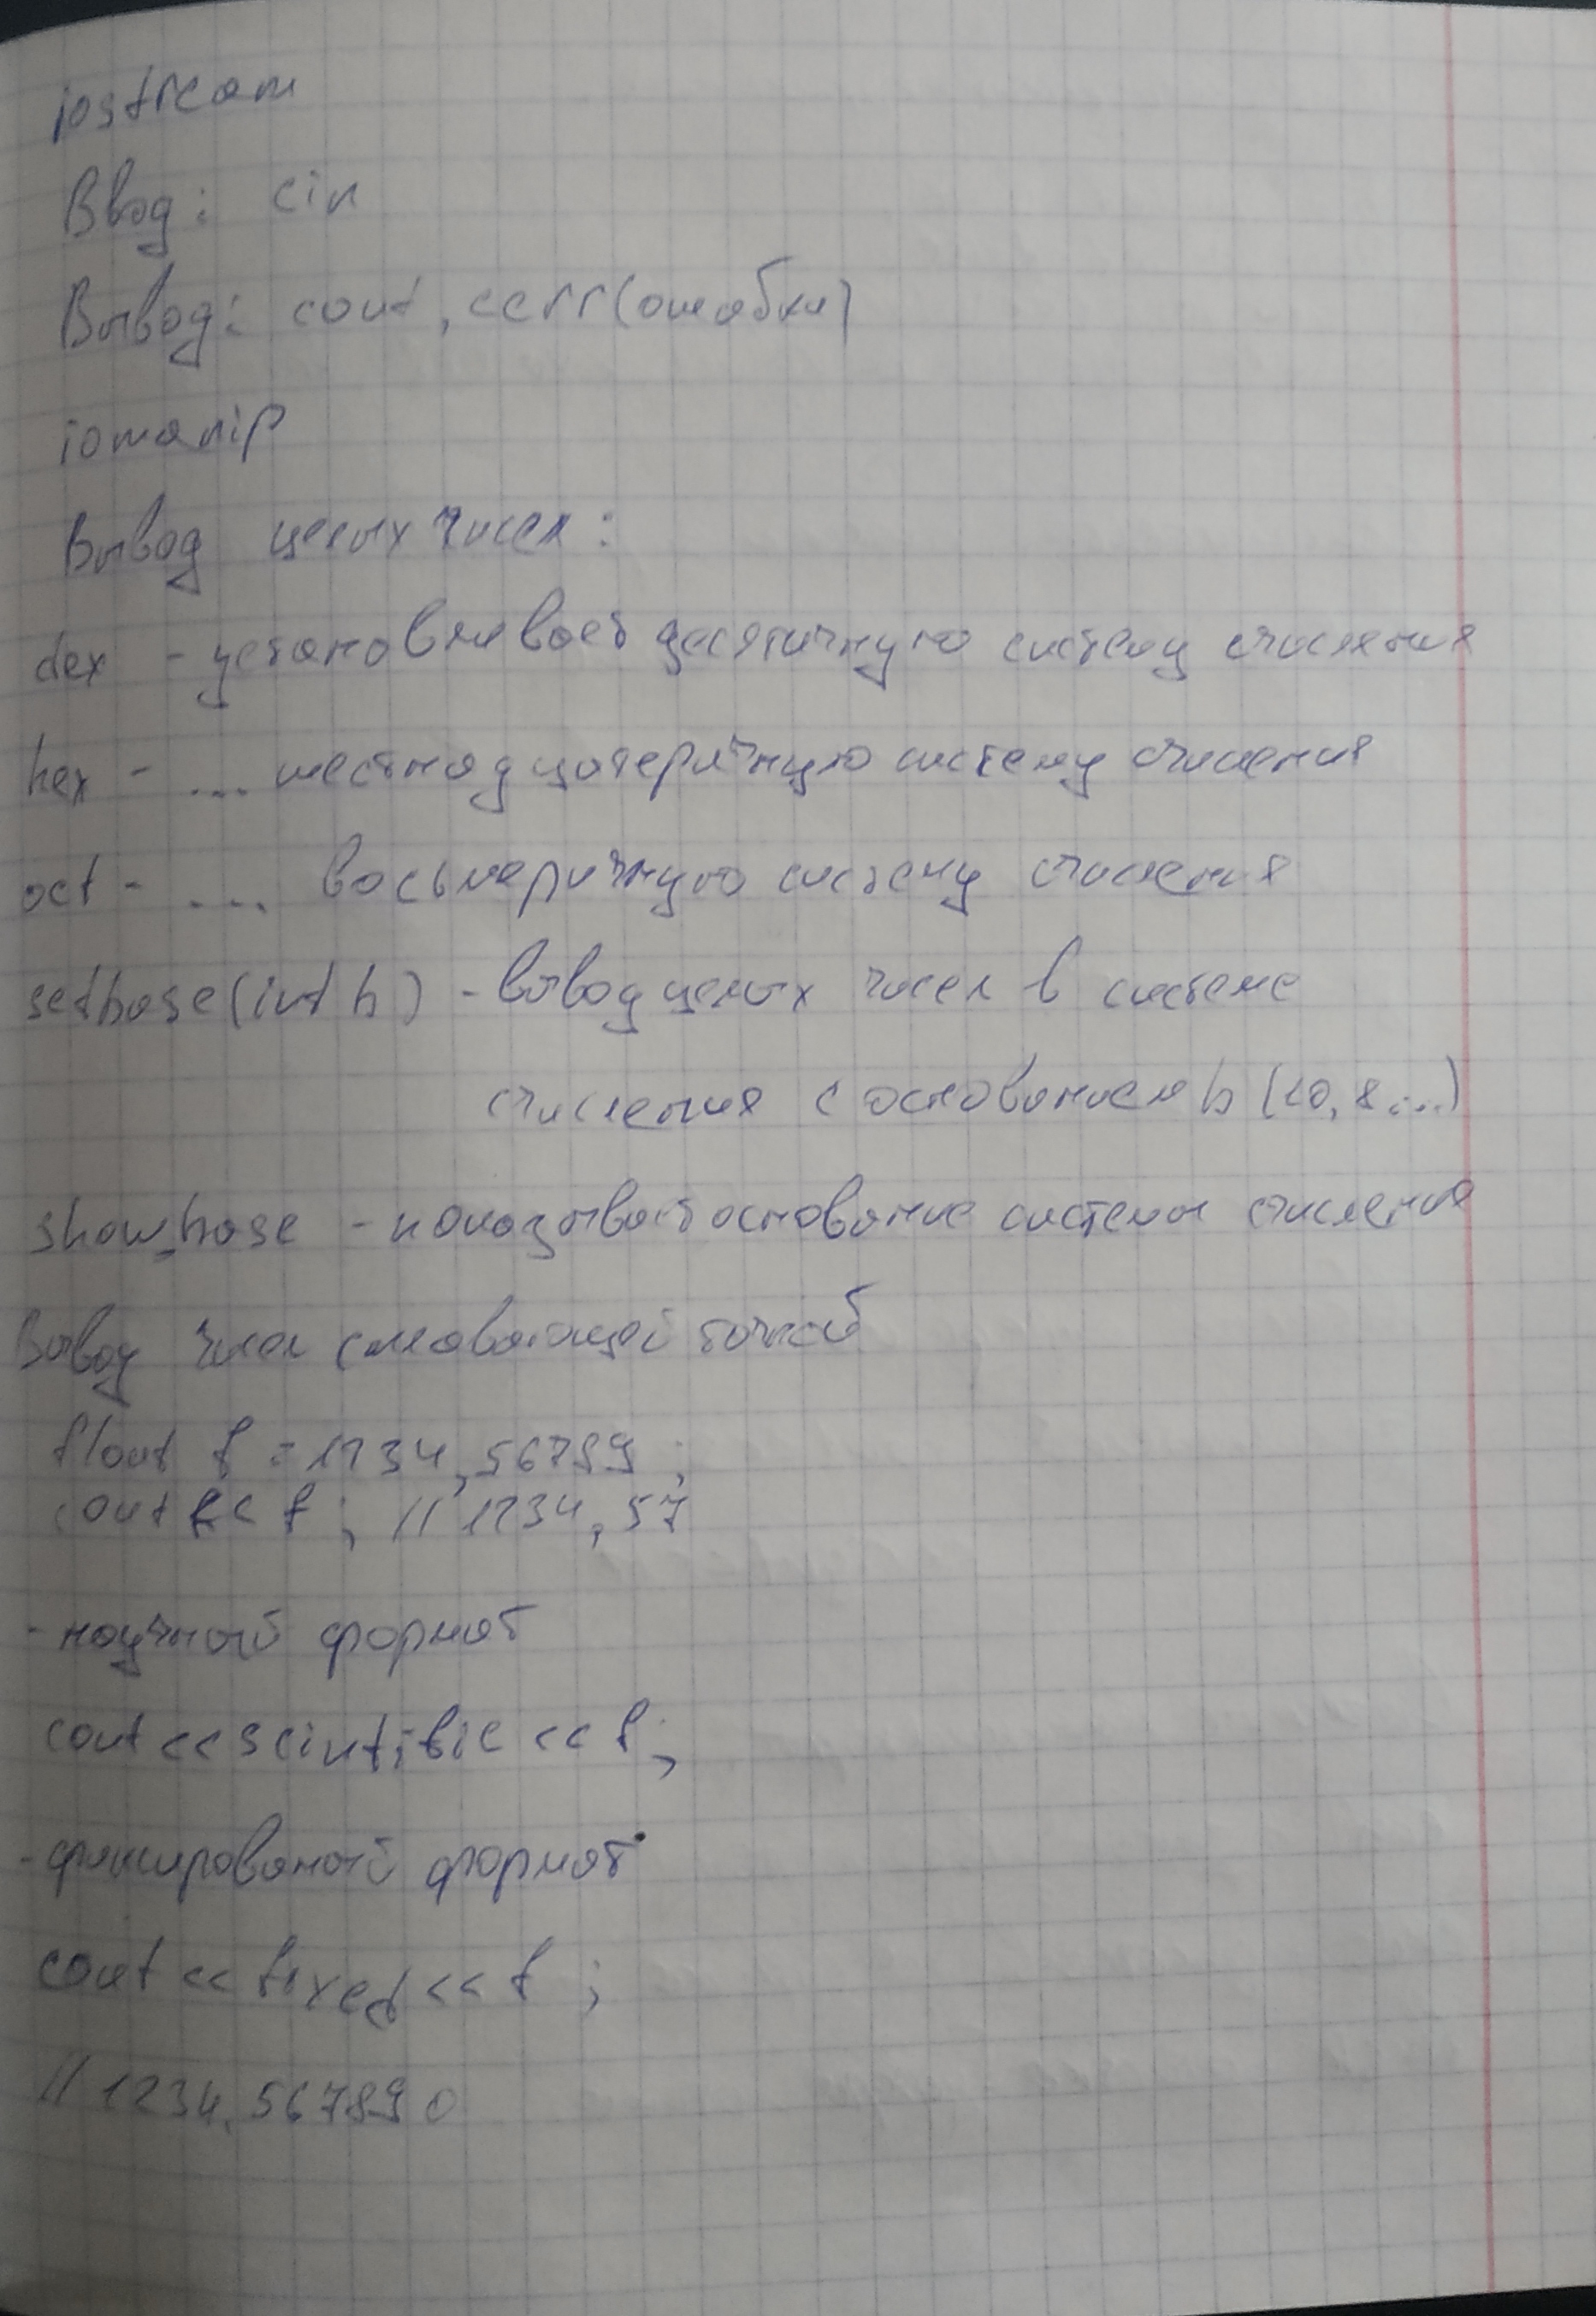 iostream
Ввод: cin
Вывод: cout, cerr(ошибки)
iomanip
Вывод целых чисел:
dex - устанавливает десятичную систему счисления
hex - ... шестнадцатеричную систему счисления
oct - ... восьмеричную систему счисления
setbase(int b) - вывод целых чисел в системе
счисления с основанием b (10, 8...)
show_base - показывает основание системы счисления
Вывод чисел с плавающей точкой
float f = 1234,56789;
cout << f; // 1234,57
- научный формат
cout << scintific << f;
- фиксированый формат
cout << fixed << f;
// 1234,567890